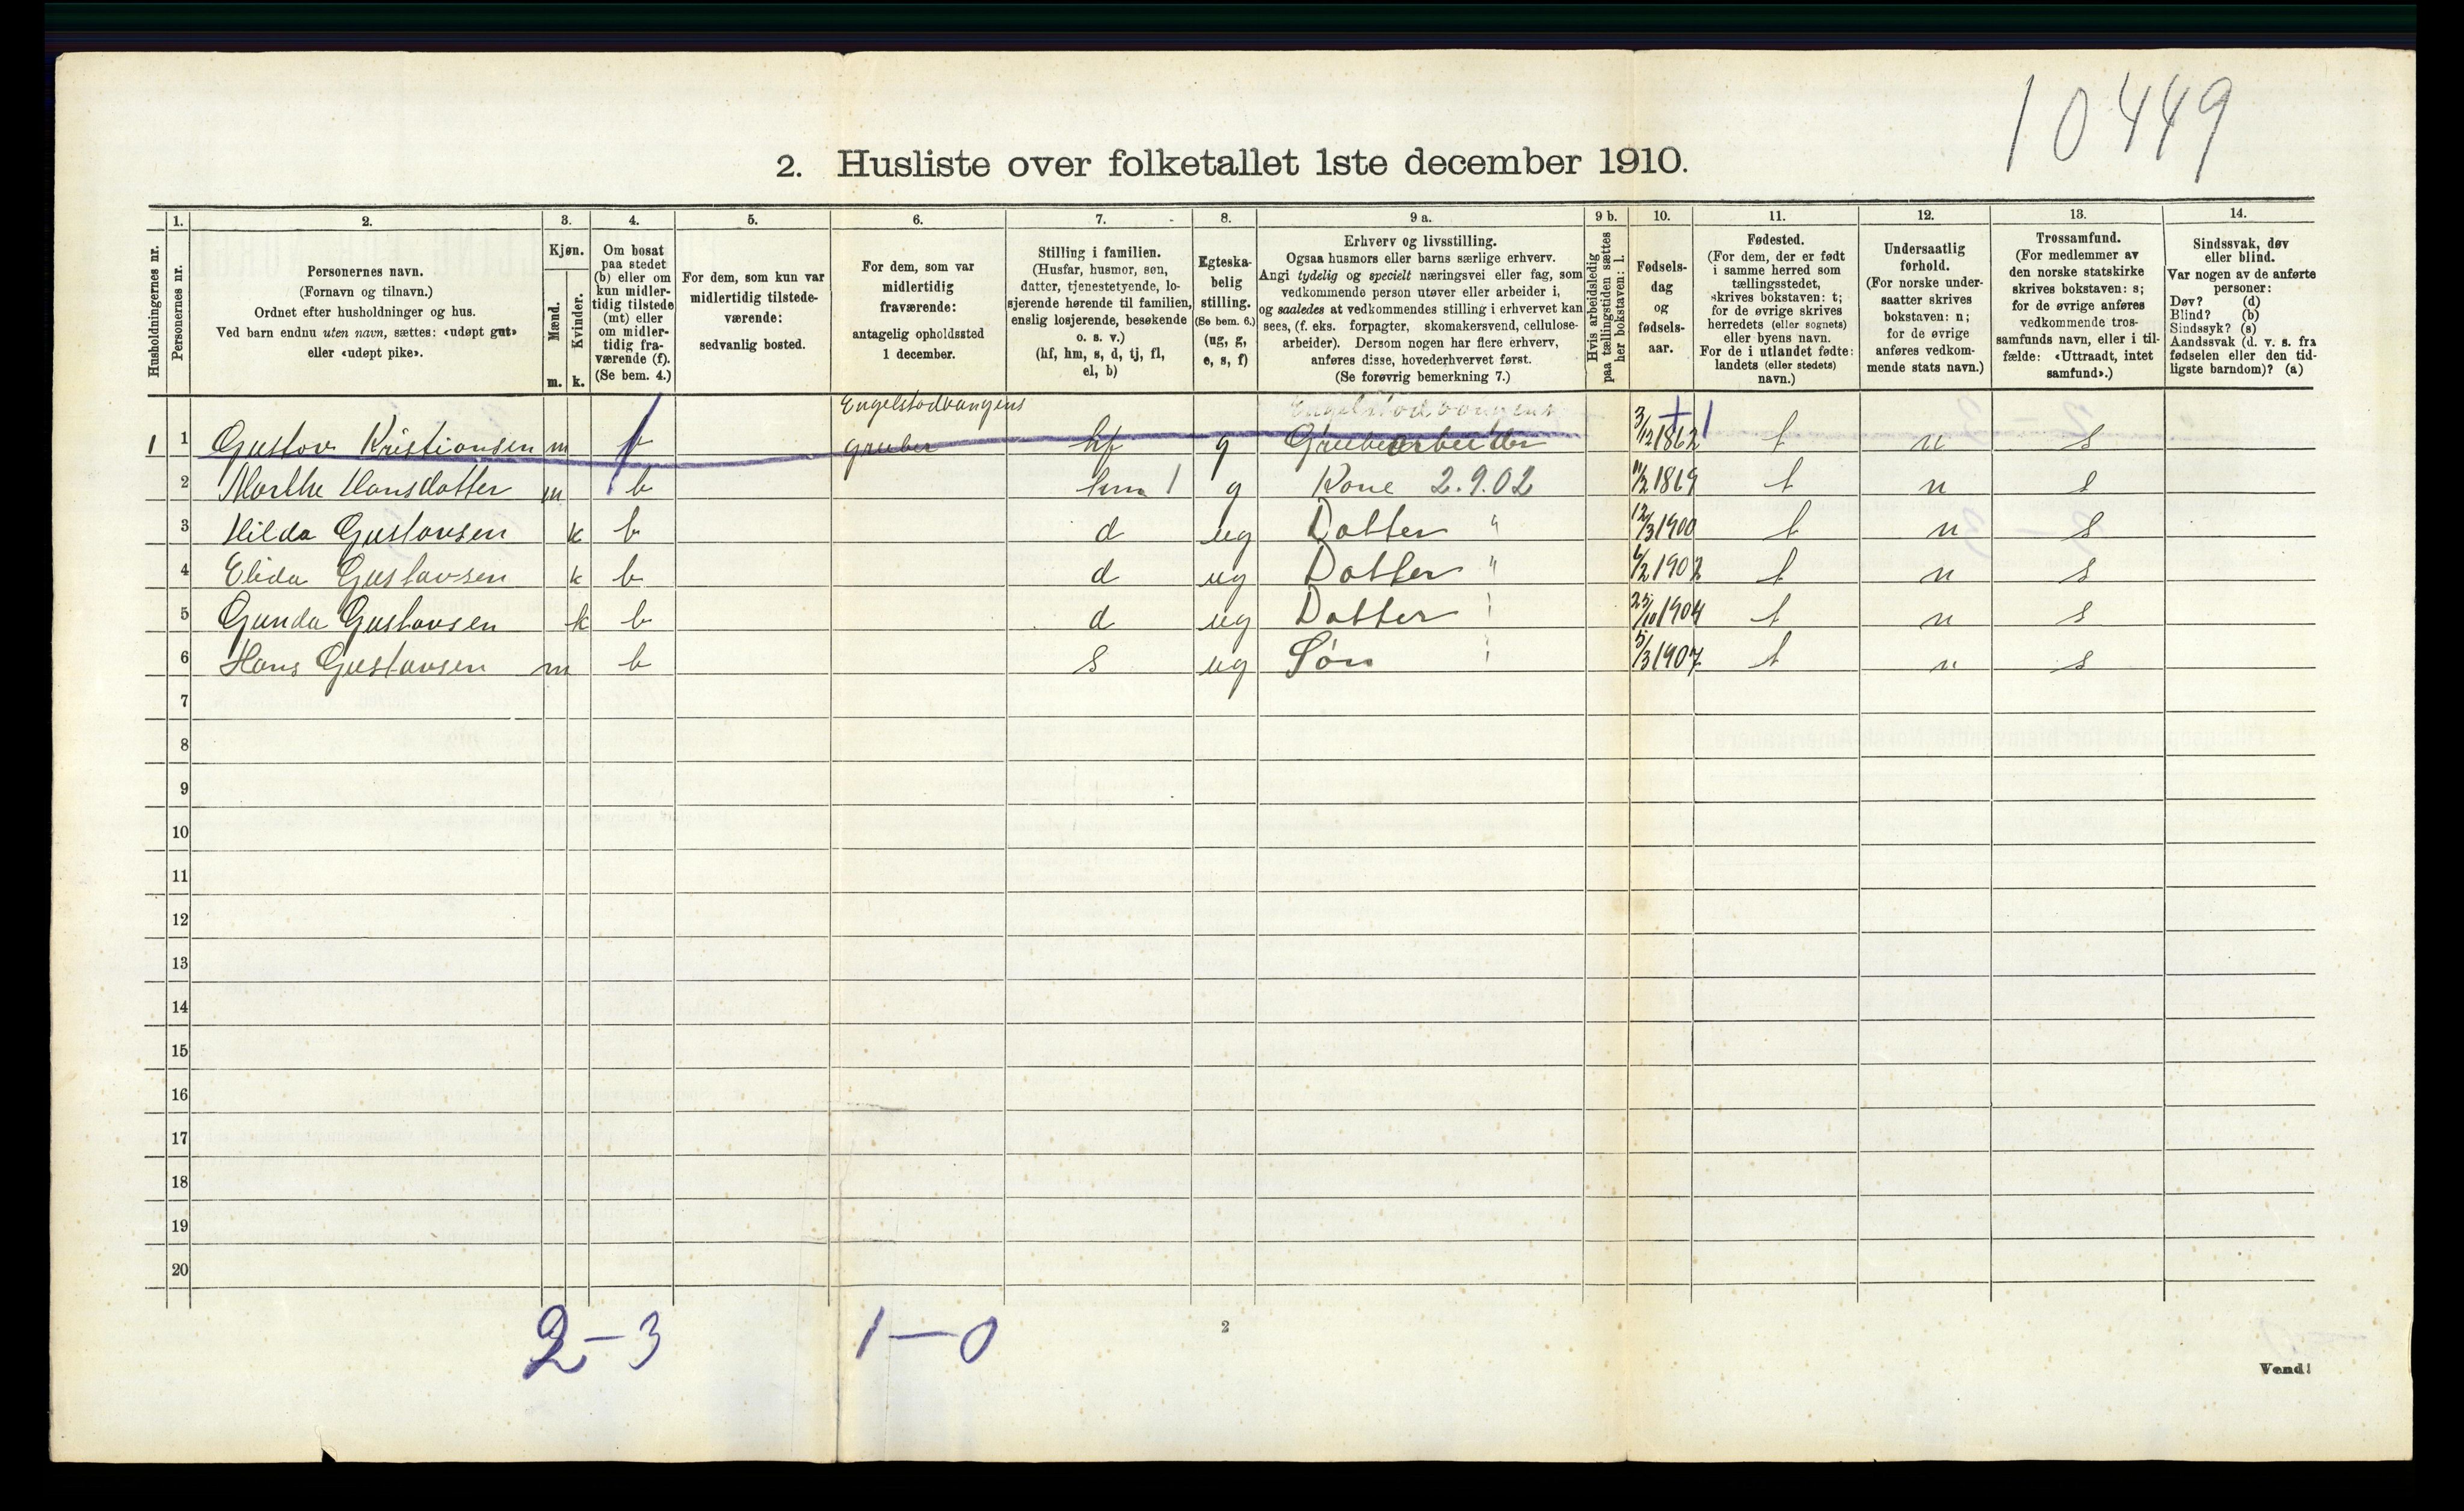 10449
2. Husliste over folketallet 1ste december 1910.
Husholdningernes nr.
1.
Personernes nr.
2.
Personernes navn.
(Fornavn og tilnavn.)
Ordnet efter husholdninger og hus.
Ved barn endnu uten navn, sættes: «udøpt gut»
eller «udøpt pike».
3.
Kjøn.
Mænd.
Kvinder.
m. k.
4.
Om bosat
paa stedet
(b) eller om
kun midler-
tidig tilstede
(mt) eller
om midler-
tidig fra-
værende (f).
(Se bem. 4.)
5.
For dem, som kun var
midlertidig tilstede-
værende:
sedvanlig bosted.
6.
For dem, som var
midlertidig
fraværende:
antagelig opholdssted
1 december.
7.
Stilling i familien.
(Husfar, husmor, søn,
datter, tjenestetyende, lo-
sjerende hørende til familien,
enslig losjerende, besøkende
o. s. v.)
(hf, hm, s, d, tj, fl,
el, b)
8.
Egteska-
belig
stilling.
(Se bem. 6.)
(ug, g,
e, s, f)
9 a.
Erhverv og livsstilling.
Ogsaa husmors eller barns særlige erhverv.
Angi tydelig og specielt næringsvei eller fag, som
vedkommende person utøver eller arbeider i,
og saaledes at vedkommendes stilling i erhvervet kan
sees, (f. eks. forpagter, skomakersvend, cellulose-
arbeider). Dersom nogen har flere erhverv,
anføres disse, hovederhvervet først.
(Se forøvrig bemerkning 7.)
9 b.
Hvis arbeidsledig
paa tællingstiden sættes
her bokstaven: l.
10.
Fødsels-
dag
og
fødsels-
aar.
11.
Fødested.
(For dem, der er født
i samme herred som
tællingsstedet,
skrives bokstaven: t;
for de øvrige skrives
herredets (eller sognets)
eller byens navn.
For de i utlandet fødte:
landets (eller stedets)
navn.)
12.
Undersaatlig
forhold.
(For norske under-
saatter skrives
bokstaven: n;
for de øvrige
anføres vedkom-
mende stats navn.)
13.
Trossamfund.
(For medlemmer av
den norske statskirke
skrives bokstaven: s;
for de øvrige anføres
vedkommende tros-
samfunds navn, eller i til-
fælde: «Uttraadt, intet
samfund».)
14.
Sindssvak, døv
eller blind.
Var nogen av de anførte
personer:
Døv? (d)
Blind? (b)
Sindssyk? (s)
Aandssvak (d. v. s. fra
fødselen eller den tid-
ligste barndom)? (a)
Engelstadvangens
Engelstadvangens
1 1 Gustav Kristiansen m f gruber hf g Grubearbeider 3/12 1862 t n s
2 Marthe Hansdatter m b hm 1 g Kone 2.9.02 11/2 1869 t n s
3 Hilda Gustavsen k b d ug Datter " 12/3 1900 t n s
4 Elida Gustavsen k b d ug Datter " 6/2 1902 t n s
5 Gunda Gustavsen k b d ug Datter " 25/10 1904 t n s
6 Hans Gustavsen m b s ug Søn " 5/3 1907 t n s
7
8
9
10
11
12
13
14
15
16
17
18
19
20
2–3 1–0
2
Vend!